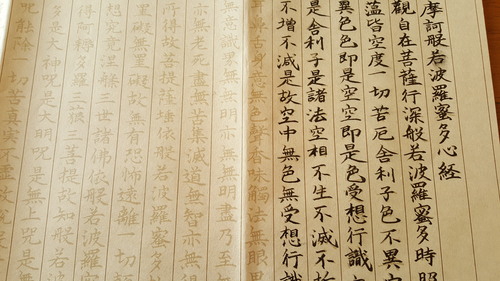 摩訶般若波羅蜜多心経
觀自在菩薩行深般若波羅蜜多時照
薀皆空度一切苦厄舍利子色不異空
異色色即是空空即是色受想行識
是舍利子是諸法空相不生不滅不垢
不增不減是故空中無色無受想行識
鼻舌身意無色聲香味觸法無眼界
無意識界無無明亦無無明盡乃至無
亦無老死盡無苦集滅道無智亦無得
所得故菩提薩埵依般若波羅蜜多
罣礙無罣礙故無有恐怖遠離一切顛
想究竟涅槃三世諸佛依般若波羅蜜
得阿耨多羅三藐三菩提故知般若波羅
多是大神呪是大明呪是無上呪是無
呪能除一切苦真実不虚故